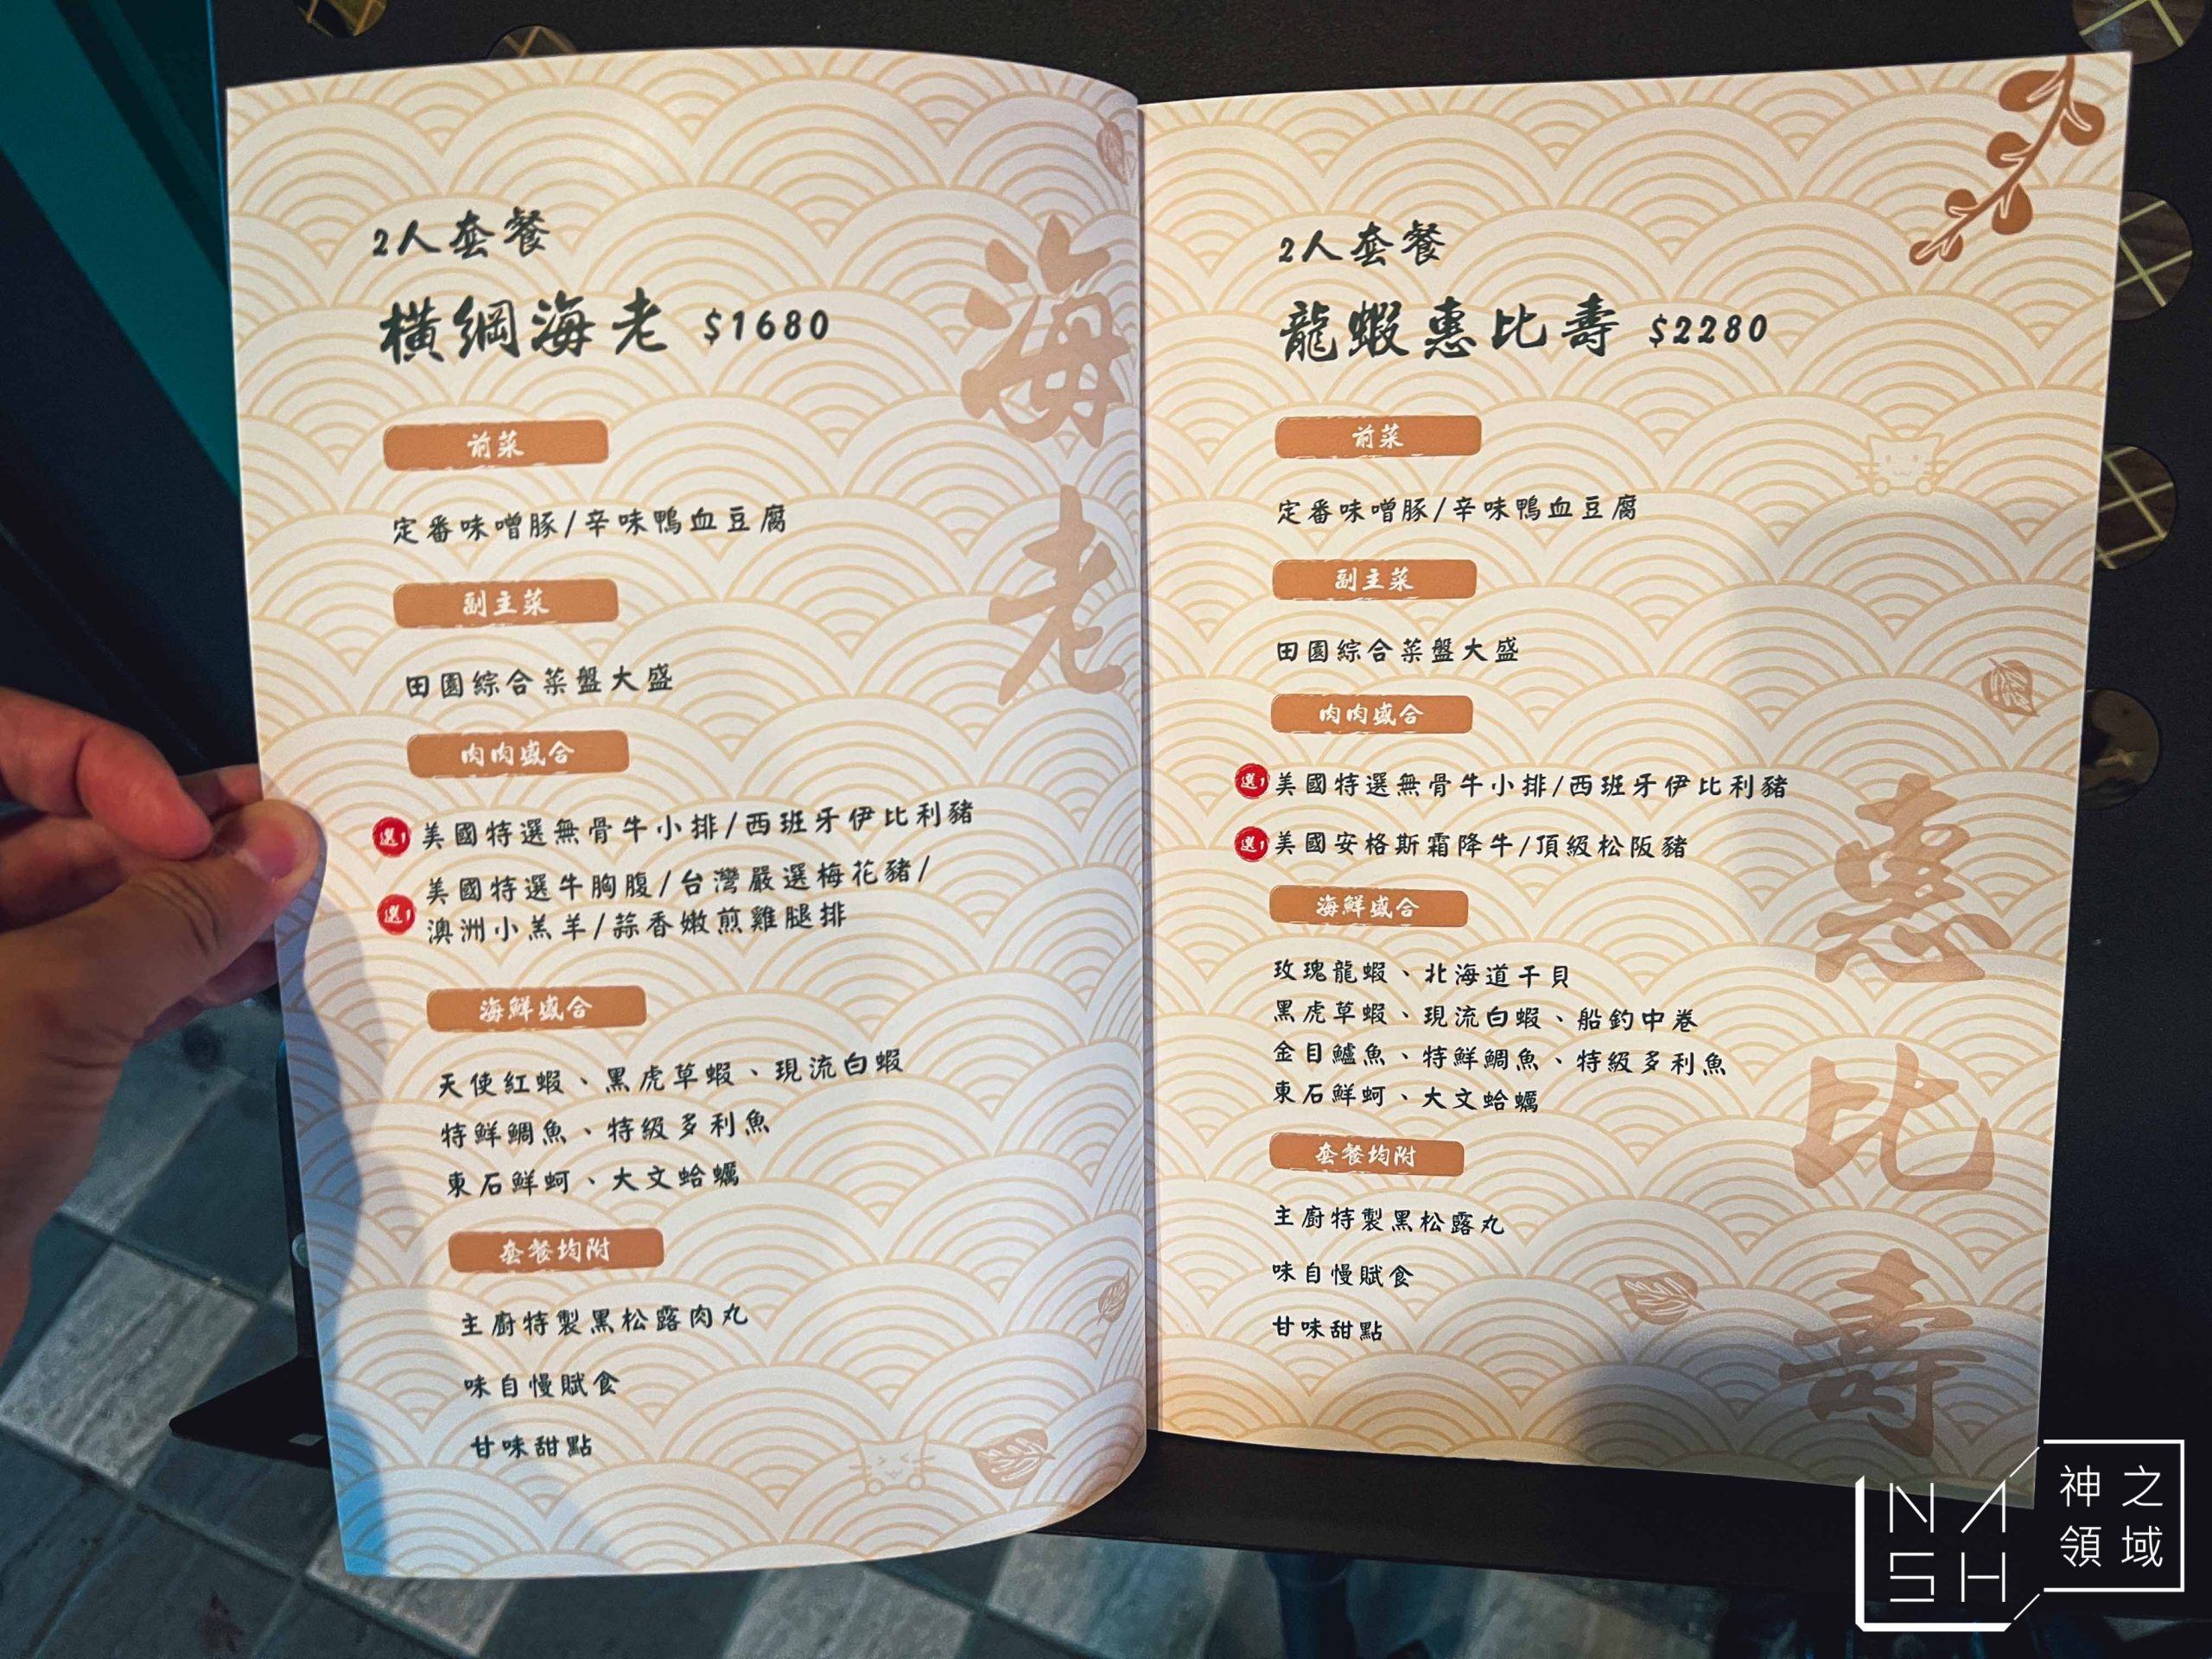 2人套餐
橫綱海老 $1680
海老
前菜
定番味噌豚/辛味鴨血豆腐
副主菜
田園綜合菜盤大盛
肉肉盛合
選1 美國特選無骨牛小排/西班牙伊比利豬
選1 美國特選牛胸腹/台灣嚴選梅花豬/
澳洲小羔羊/蒜香嫩煎雞腿排
海鮮盛合
天使紅蝦、黑虎草蝦、現流白蝦
特鮮鯛魚、特級多利魚
東石鮮蚵、大文蛤蠣
套餐均附
主廚特製黑松露肉丸
味自慢賦食
甘味甜點
2人套餐
龍蝦惠比壽 $2280
前菜
定番味噌豚/辛味鴨血豆腐
副主菜
田園綜合菜盤大盛
肉肉盛合
選1 美國特選無骨牛小排/西班牙伊比利豬
選1 美國安格斯霜降牛/頂級松阪豬
海鮮盛合
玫瑰龍蝦、北海道干貝
黑虎草蝦、現流白蝦、船釣中卷
金目鱸魚、特鮮鯛魚、特級多利魚
東石鮮蚵、大文蛤蠣
套餐均附
主廚特製黑松露丸
味自慢賦食
甘味甜點
惠比壽
NASH
神之
領域